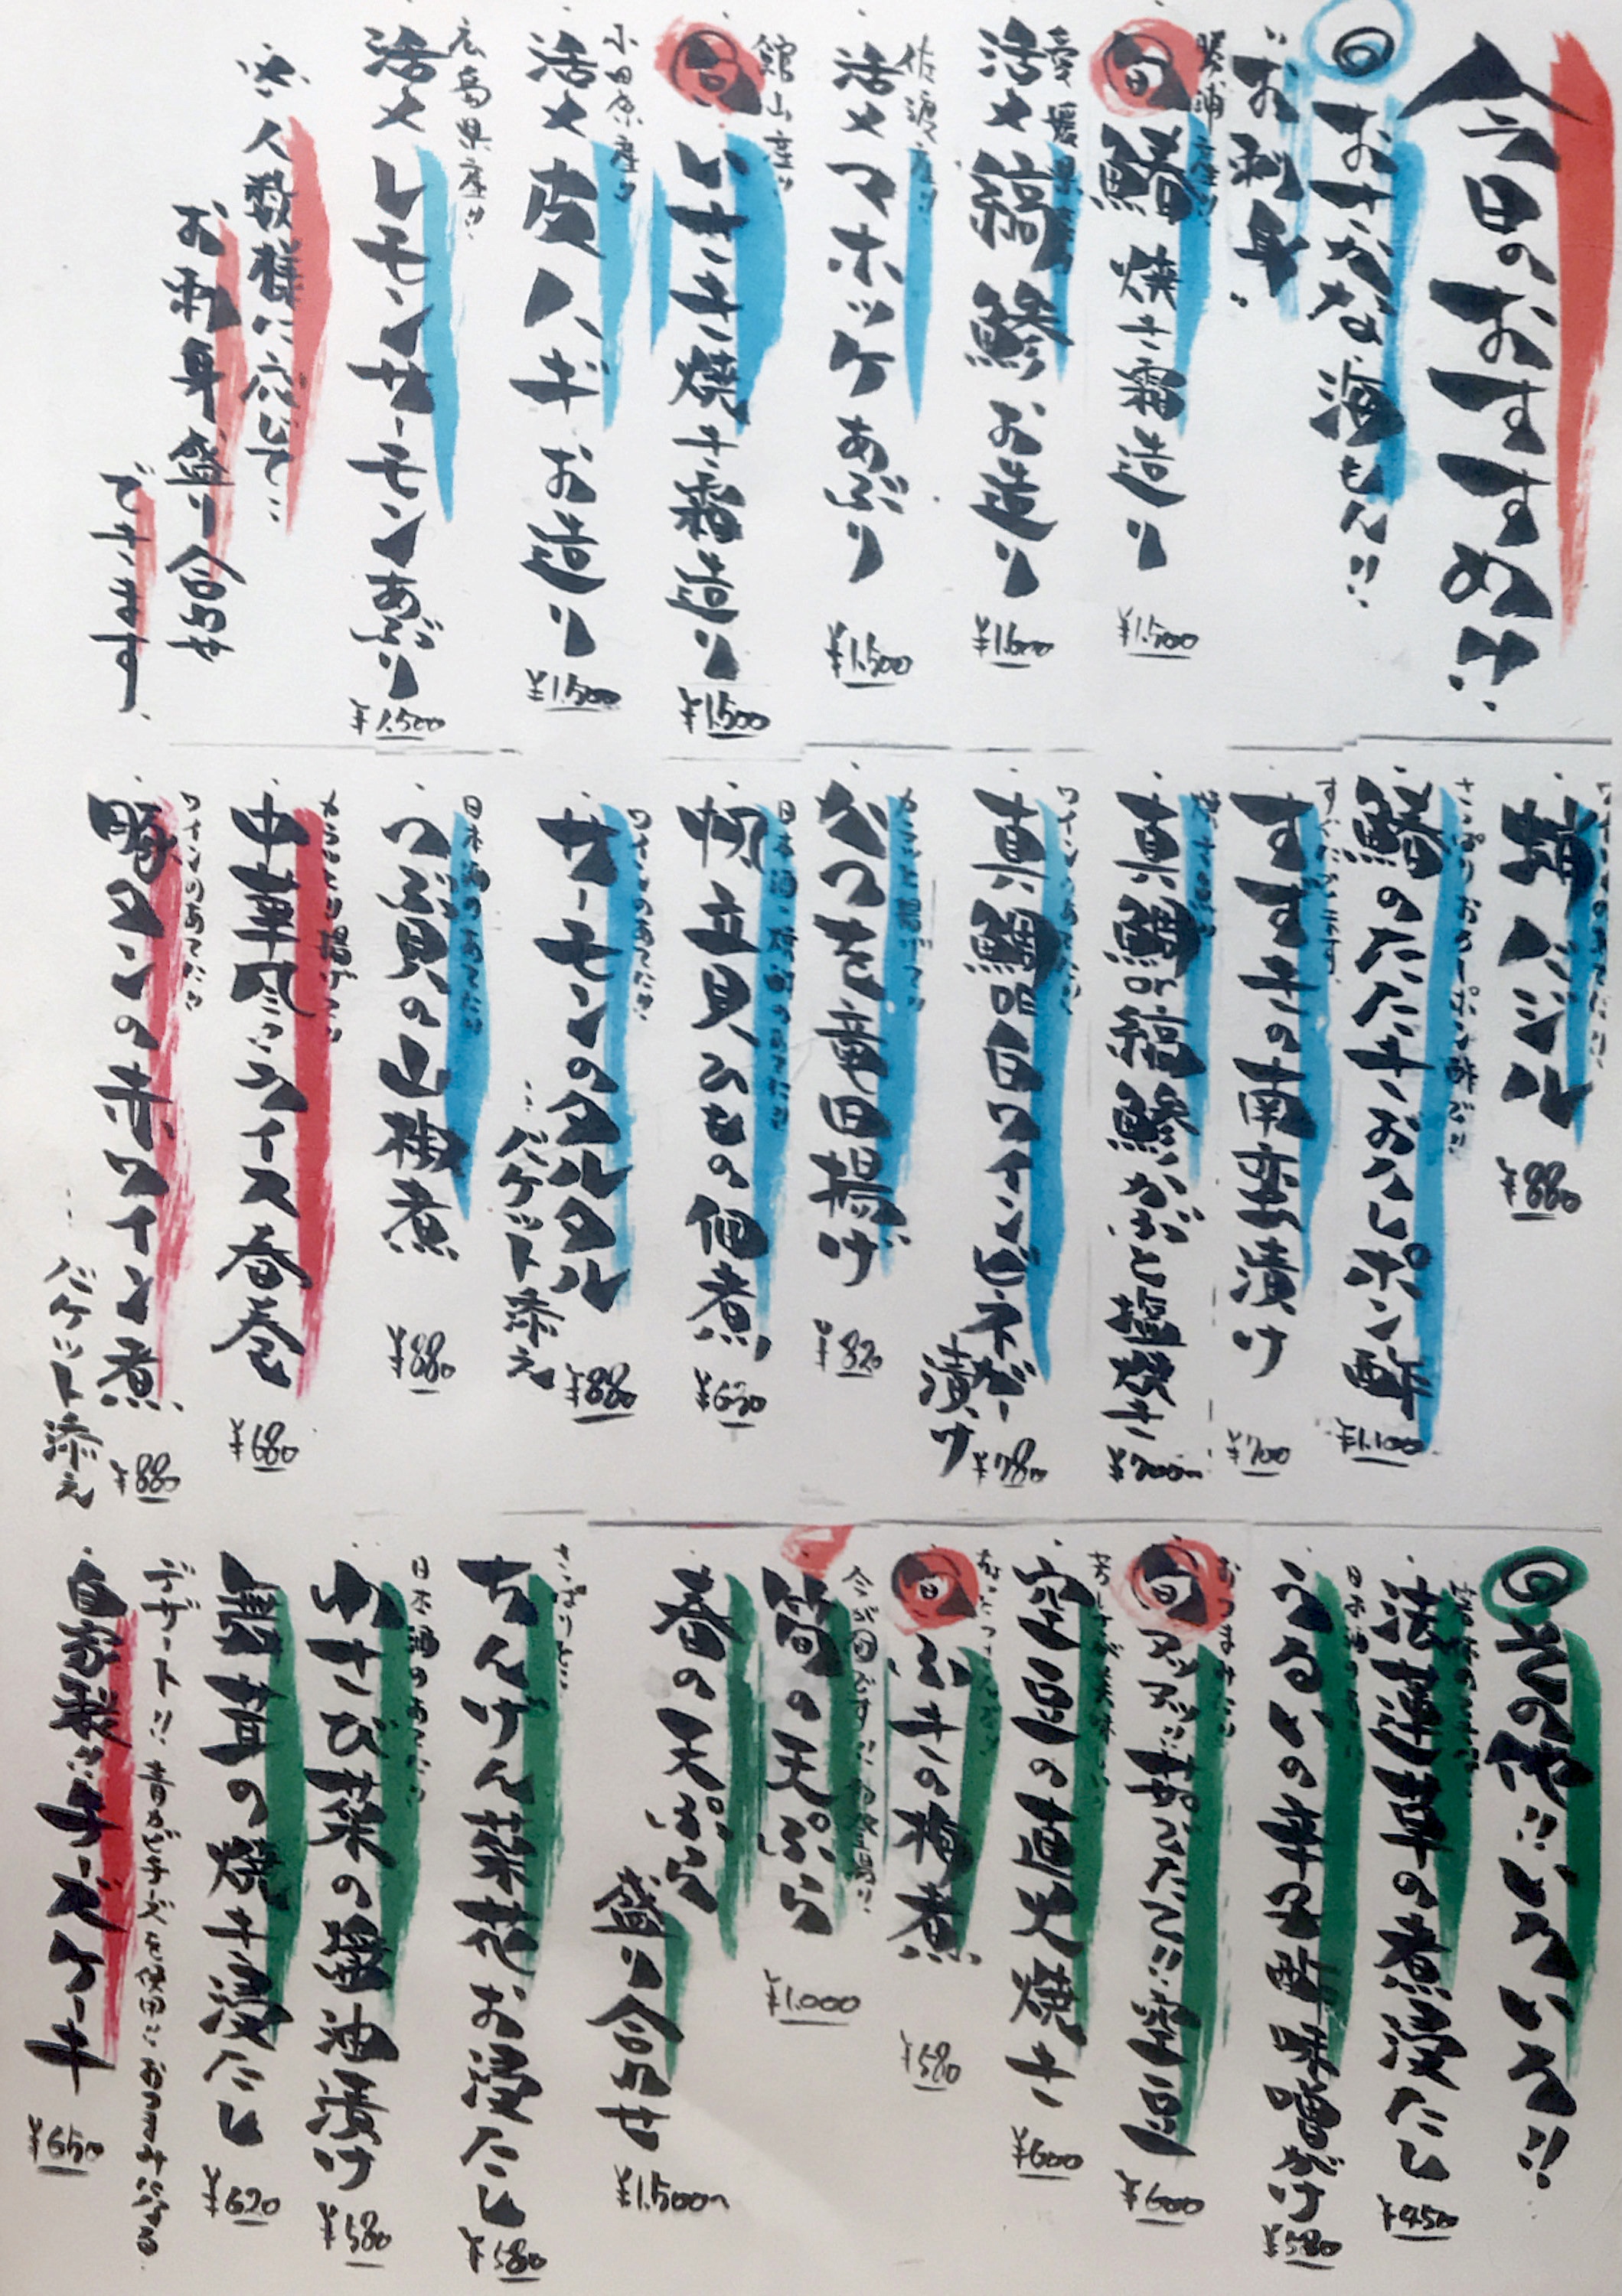 今日のおすすめ!!
◎おさかな海もん!!
"お刺身"
勝浦産!!
旬 鰆焼き霜造り
¥1.500
愛媛県産!!
活〆縞鯵お造り
¥1.600
佐渡産!!
活〆マホッケあぶり
¥1.500
館山産!!
旬 いさき焼き霜造り
¥1.500
小田原産!!
活〆皮ハギお造り
¥1.500
広島県産!!
活〆レモンサーモンあぶり
¥1.500
※人数様に応じて…
お刺身盛り合わせ
できます。
¥880
さっぱりおろしポン酢で!!
鰆のたたきおろしポン酢
¥1.100
すずきの南蛮漬け
¥700
真鯛or縞鯵かぶと塩焼き
¥700〜
ワインのあてに!!
真鯛の白ワインビネガー漬け
¥780
カラッと揚げて!!
かつを竜田揚げ
¥820
帆立貝ひもの佃煮
¥620
ワインのあてに!!
サーモンのタルタル
…バケット添え
¥880
日本酒のあてに!!
つぶ貝の山椒煮
¥880
中華風ライス春巻
¥680
ワインのあてに!!
豚タンの赤ワイン煮
…バケット添え
¥880
◎その他!!いろいろ!!
法蓮草の煮浸たし
¥450
うるいの辛子酢味噌がけ
¥580
おつまみに!!
旬 アツアツ茹でたて!!空豆
¥600
空豆の直火焼き
¥600
旬 ふきの梅煮
¥580
今が旬です!!
筍の天ぷら
¥1.000
春の天ぷら
盛り合わせ
¥1.500〜
さっぱりと!!
ちんげん菜花お浸たし
¥580
日本酒のあてに!!
わさび菜の醤油漬け
¥580
舞茸の焼き浸たし
¥620
自家製!!チーズケーキ
¥650